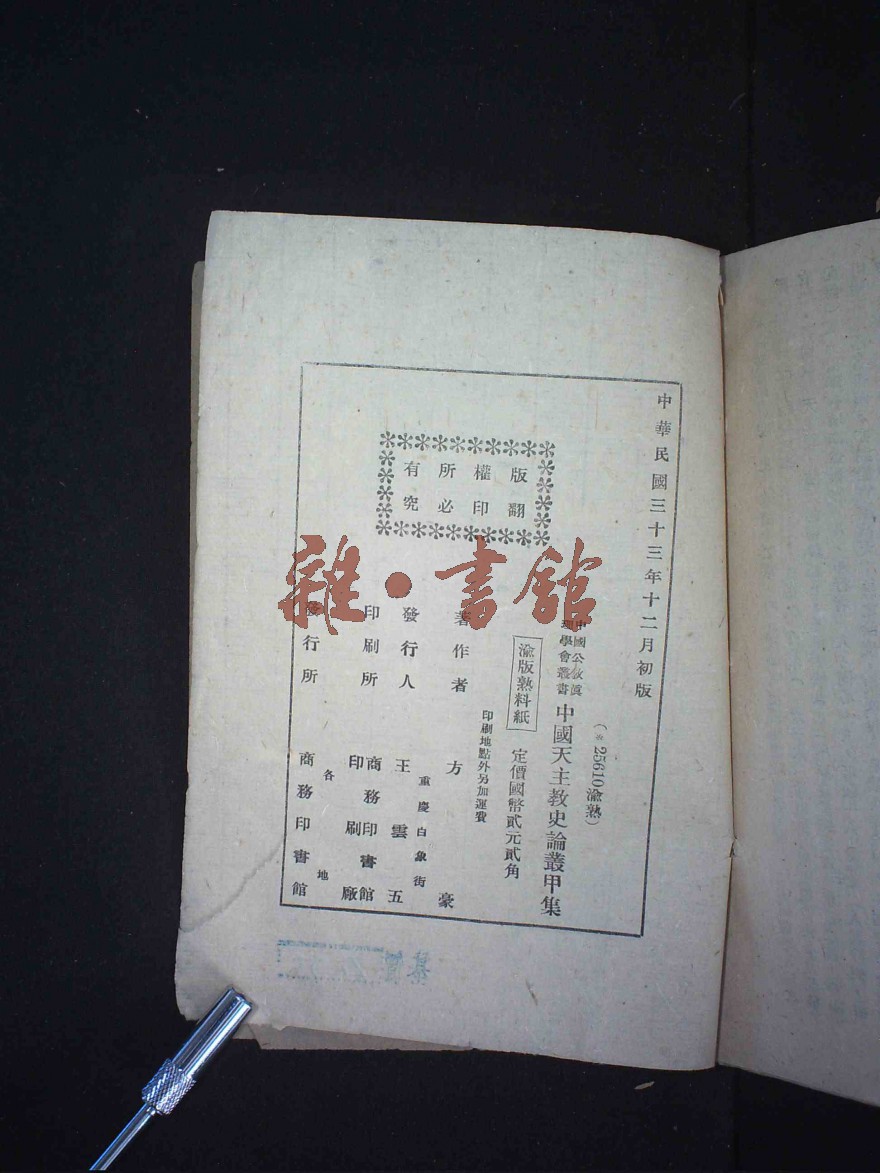 中華民國三十三年十二月初版
(25610渝熟)
中國公敎眞
理學會叢書
中國天主教史論叢甲集
渝版熟料紙
定價國幣貳元貳角
印刷地點外另加運費
版權所有
翻印必究
著作者 方豪
重慶白象街
發行人 王雲五
印刷所 商務印書館
印刷廠
各地
發行所 商務印書館
雜·書館